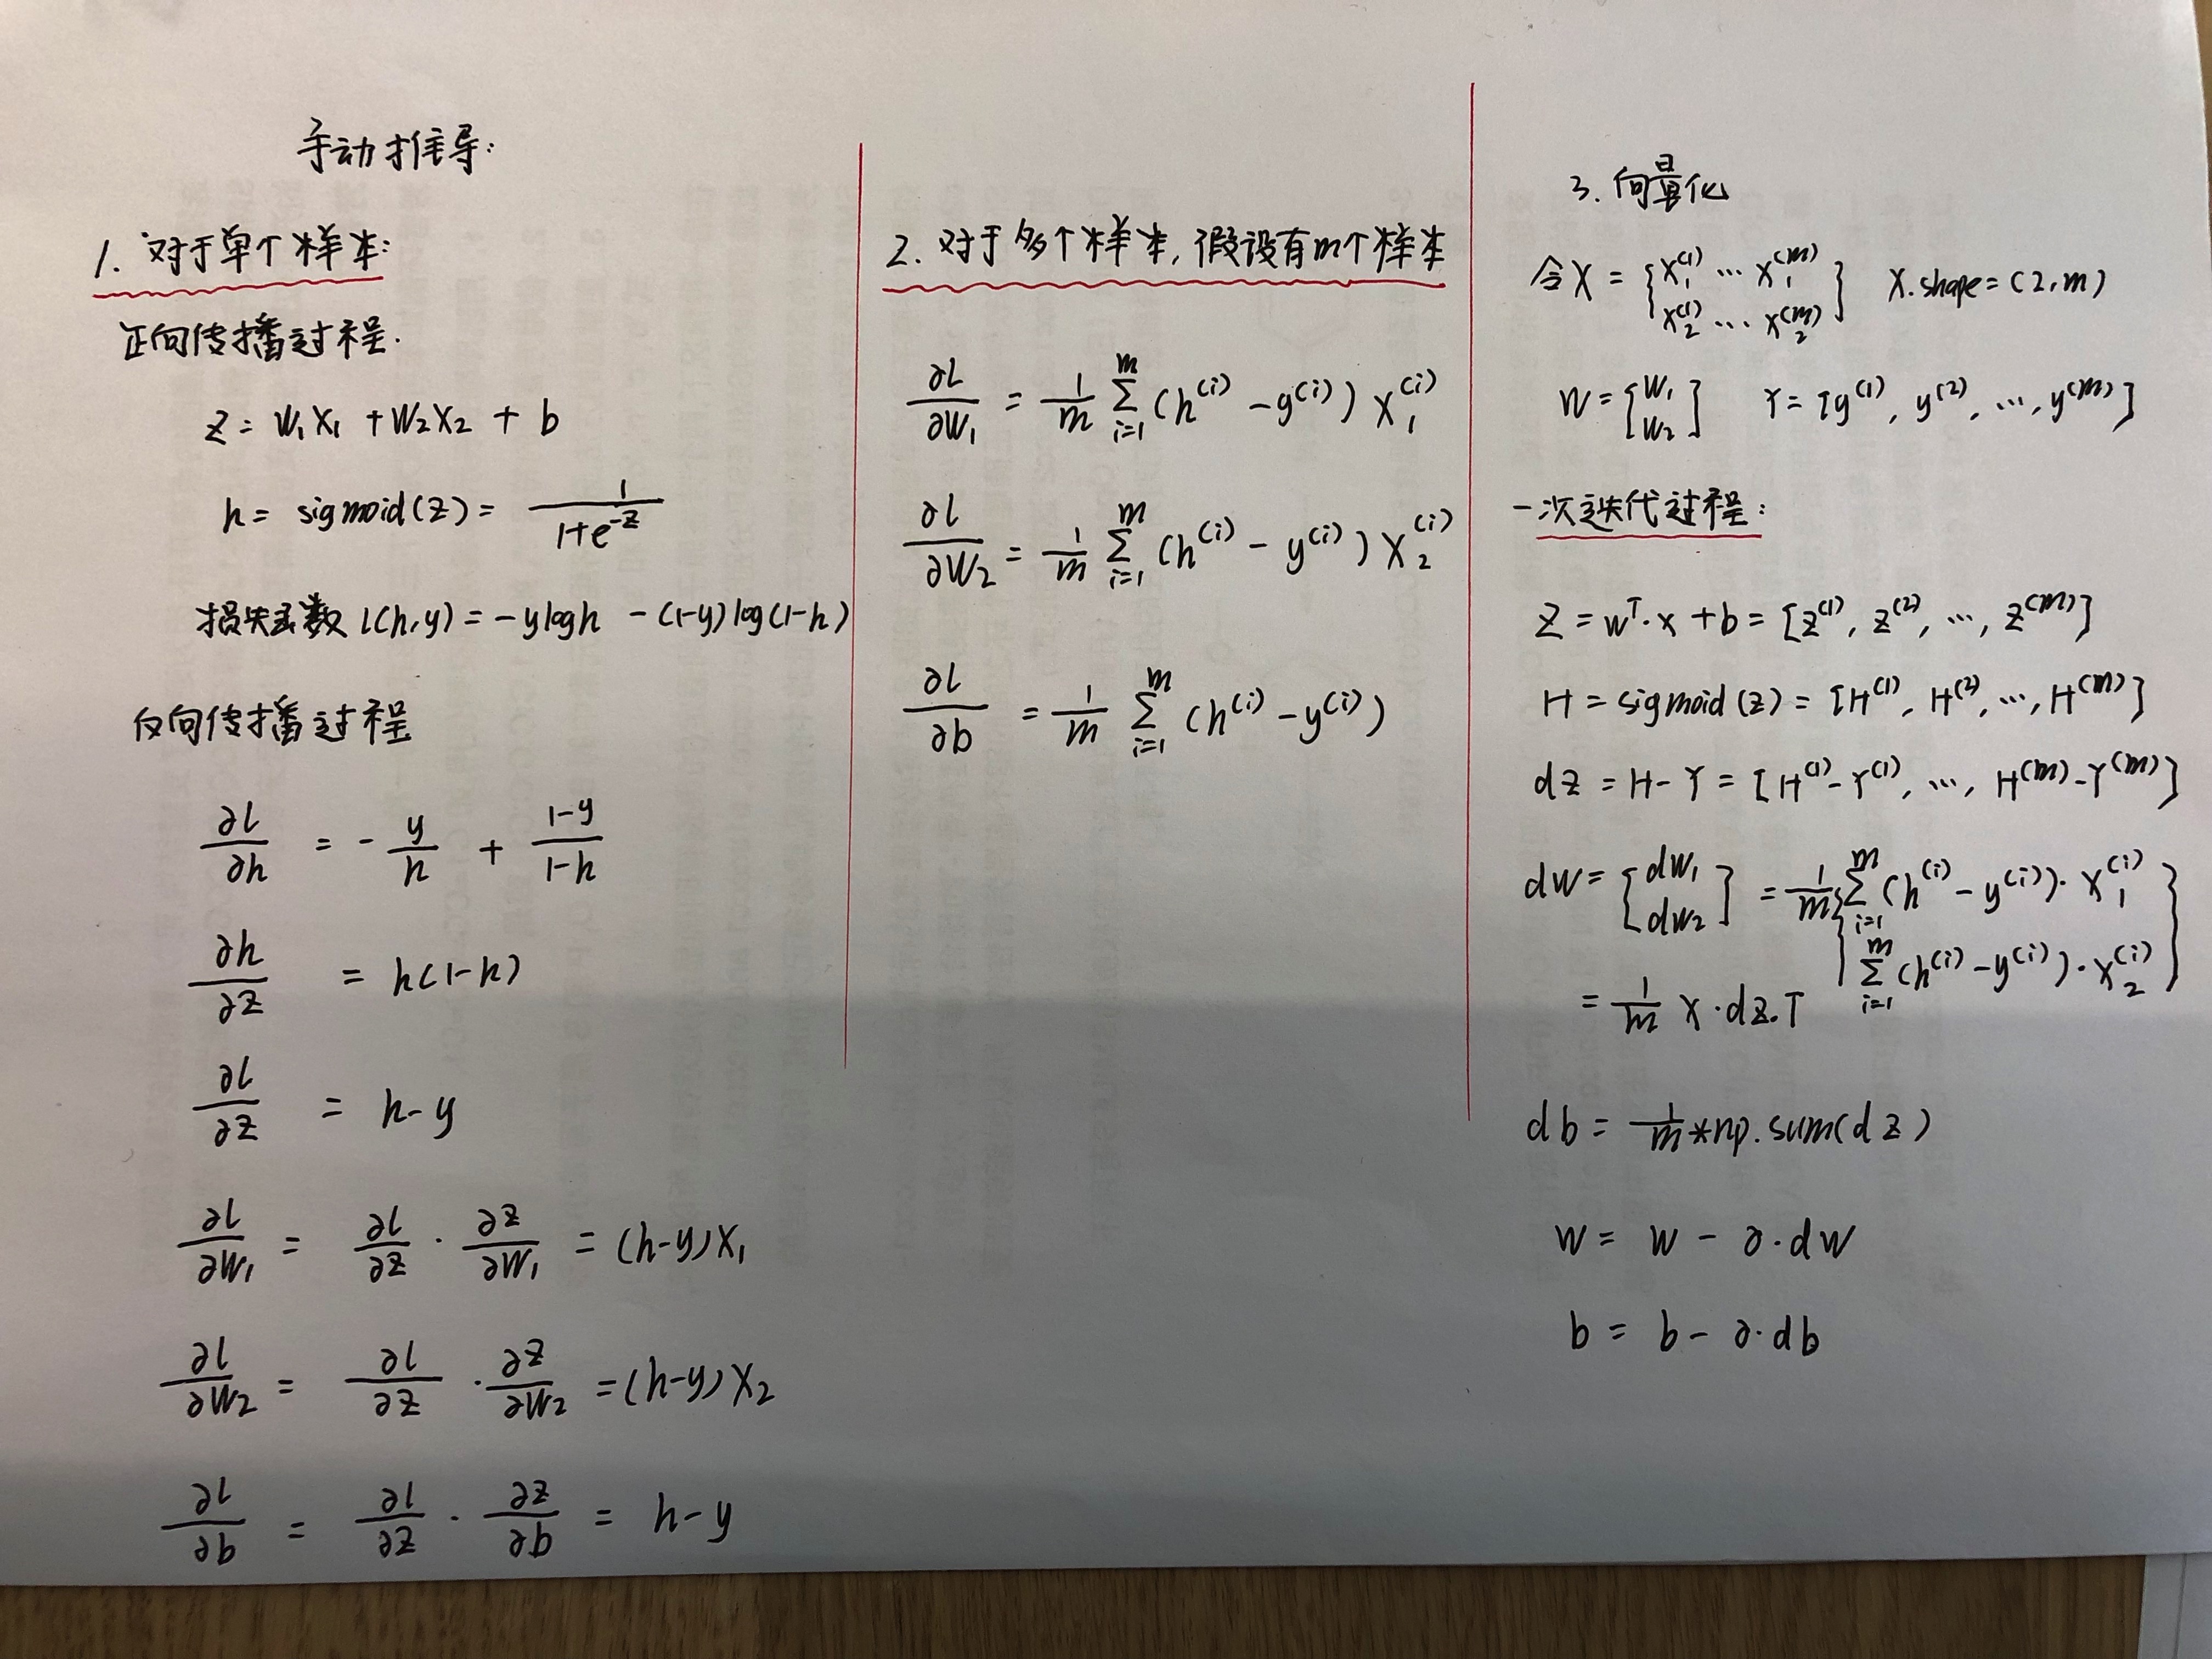 手动推导:
1. 对于单个样本:
正向传播过程.
z = w₁x₁ + w₂x₂ + b
h = sigmoid(z) = 1/(1+e^{-z})
损失函数 l(h,y) = -ylogh - (1-y)log(1-h)
反向传播过程
∂l/∂h = - y/h + (1-y)/(1-h)
∂h/∂z = h(1-h)
∂l/∂z = h-y
∂l/∂w₁ = ∂l/∂z · ∂z/∂w₁ = (h-y)x₁
∂l/∂w₂ = ∂l/∂z · ∂z/∂w₂ = (h-y)x₂
∂l/∂b = ∂l/∂z · ∂z/∂b = h-y
2. 对于多个样本, 假设有m个样本
∂l/∂w₁ = 1/m ∑_{i=1}^{m} (h^{(i)} - y^{(i)}) x₁^{(i)}
∂l/∂w₂ = 1/m ∑_{i=1}^{m} (h^{(i)} - y^{(i)}) x₂^{(i)}
∂l/∂b = 1/m ∑_{i=1}^{m} (h^{(i)} - y^{(i)})
3. 向量化
令X = [x₁^{(1)} ... x₁^{(m)} X.shape = (2,m)
x₂^{(1)} ... x₂^{(m)}]
W = [w₁ Y = [y^{(1)}, y^{(2)}, ..., y^{(m)}]
w₂]
一次迭代过程:
Z = w^T·x + b = [z^{(1)}, z^{(2)}, ..., z^{(m)}]
H = sigmoid(z) = [H^{(1)}, H^{(2)}, ..., H^{(m)}]
dz = H - Y = [H^{(1)}-Y^{(1)}, ..., H^{(m)}-Y^{(m)}]
dw = [dw₁ = 1/m [∑_{i=1}^{m} (h^{(i)} - y^{(i)})·x₁^{(i)}
dw₂] ∑_{i=1}^{m} (h^{(i)} - y^{(i)})·x₂^{(i)}]
= 1/m X·dz.T
db = 1/m *np.sum(dz)
w = w - ∂·dw
b = b - ∂·db